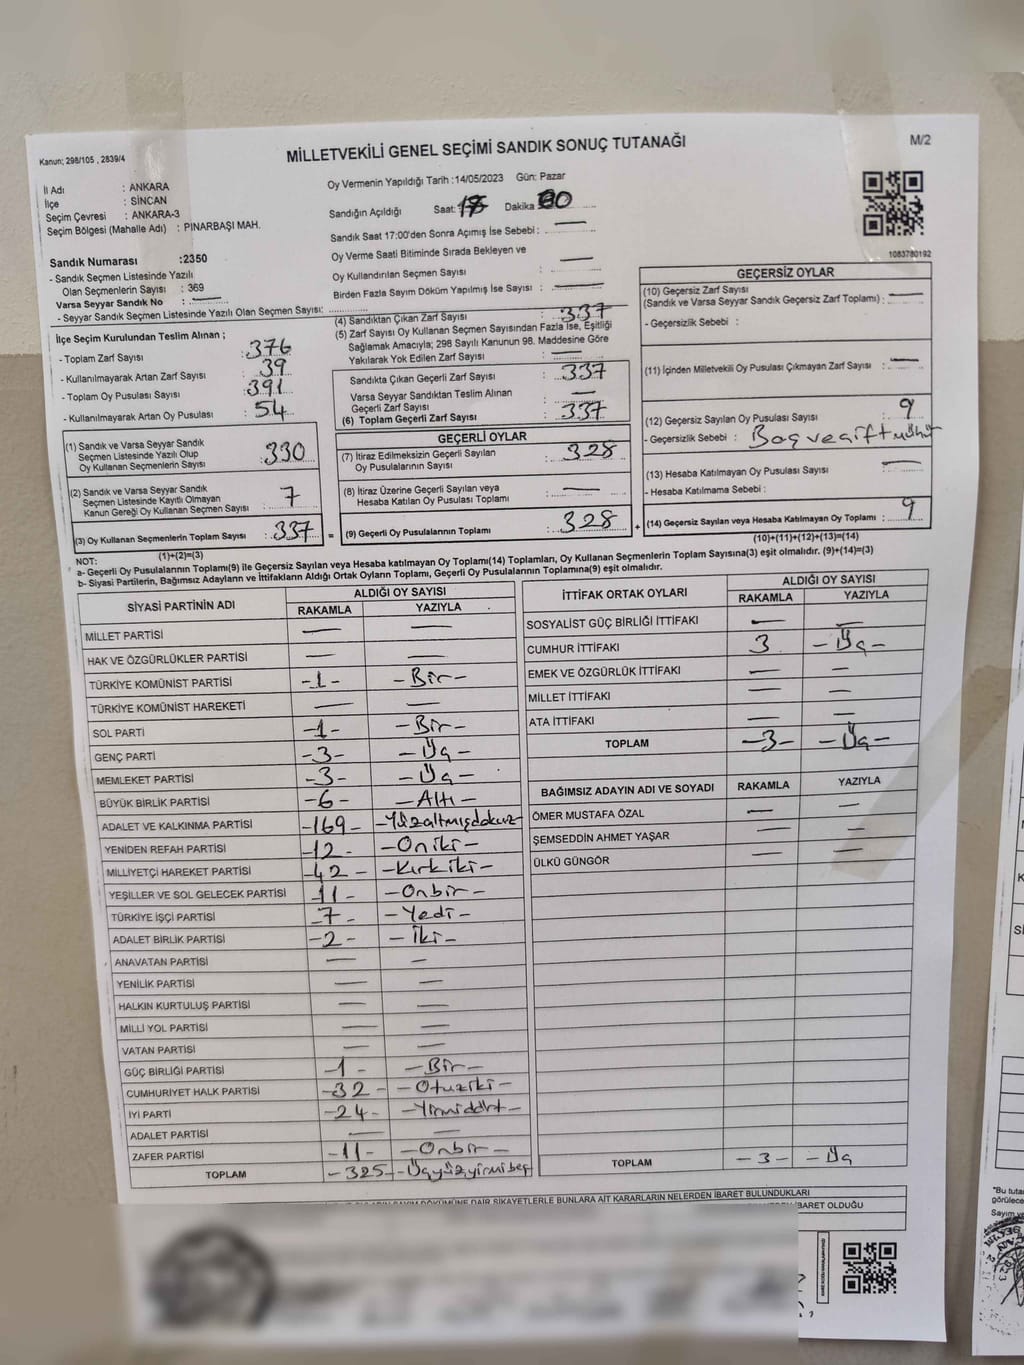 Kanun; 298/105 , 2839/4
MİLLETVEKİLİ GENEL SEÇİMİ SANDIK SONUÇ TUTANAĞI
M/2
İl Adı : ANKARA
İlçe : SİNCAN
Seçim Çevresi : ANKARA-3
Seçim Bölgesi (Mahalle Adı) : PINARBAŞI MAH.
Sandık Numarası :2350
- Sandık Seçmen Listesinde Yazılı
Olan Seçmenlerin Sayısı : 369
Varsa Seyyar Sandık No :
- Seyyar Sandık Seçmen Listesinde Yazılı Olan Seçmen Sayısı:
Oy Vermenin Yapıldığı Tarih :14/05/2023 Gün: Pazar
Sandığın Açıldığı Saat: Dakika
Sandık Saat 17:00'den Sonra Açımış İse Sebebi : —
Oy Verme Saati Bitiminde Sırada Bekleyen ve
Oy Kullandırılan Seçmen Sayısı : —
Birden Fazla Sayım Döküm Yapılmış İse Sayısı : —
1083780192
İlçe Seçim Kurulundan Teslim Alınan ;
- Toplam Zarf Sayısı : 376
- Kullanılmayarak Artan Zarf Sayısı : 39
- Toplam Oy Pusulası Sayısı : 391
- Kullanılmayarak Artan Oy Pusulası : 54
(1) Sandık ve Varsa Seyyar Sandık
Seçmen Listesinde Yazılı Olup
Oy Kullanan Seçmenlerin Sayısı : 330
(2) Sandık ve Varsa Seyyar Sandık
Seçmen Listesinde Kayıtlı Olmayan
Kanun Gereği Oy Kullanan Seçmen Sayısı : 7
(3) Oy Kullanan Seçmenlerin Toplam Sayısı : 337
(1)+(2)=(3)
(4) Sandıktan Çıkan Zarf Sayısı : 337
(5) Zarf Sayısı Oy Kullanan Seçmen Sayısından Fazla İse, Eşitliği
Sağlamak Amacıyla; 298 Sayılı Kanunun 98. Maddesine Göre
Yakılarak Yok Edilen Zarf Sayısı : —
Sandıkta Çıkan Geçerli Zarf Sayısı : 337
Varsa Seyyar Sandıktan Teslim Alınan
Geçerli Zarf Sayısı : —
(6) Toplam Geçerli Zarf Sayısı : 337
GEÇERLİ OYLAR
(7) İtiraz Edilmeksizin Geçerli Sayılan
Oy Pusulalarının Sayısı : 328
(8) İtiraz Üzerine Geçerli Sayılan veya
Hesaba Katılan Oy Pusulası Toplamı : —
= (9) Geçerli Oy Pusulalarının Toplamı : 328 +
GEÇERSİZ OYLAR
(10) Geçersiz Zarf Sayısı
(Sandık ve Varsa Seyyar Sandık Geçersiz Zarf Toplamı) : —
- Geçersizlik Sebebi :
(11) İçinden Milletvekili Oy Pusulası Çıkmayan Zarf Sayısı : —
(12) Geçersiz Sayılan Oy Pusulası Sayısı : 9
- Geçersizlik Sebebi : Boş ve çift mühür
(13) Hesaba Katılmayan Oy Pusulası Sayısı : —
- Hesaba Katılmama Sebebi :
(14) Geçersiz Sayılan veya Hesaba Katılmayan Oy Toplamı : 9
(10)+(11)+(12)+(13)=(14)
NOT:
a- Geçerli Oy Pusulalarının Toplamı(9) ile Geçersiz Sayılan veya Hesaba katılmayan Oy Toplamı(14) Toplamları, Oy Kullanan Seçmenlerin Toplam Sayısına(3) eşit olmalıdır. (9)+(14)=(3)
b- Siyasi Partilerin, Bağımsız Adayların ve İttifakların Aldığı Ortak Oyların Toplamı, Geçerli Oy Pusulalarının Toplamına(9) eşit olmalıdır.
SİYASİ PARTİNİN ADI ALDIĞI OY SAYISI
RAKAMLA YAZIYLA
MİLLET PARTİSİ — —
HAK VE ÖZGÜRLÜKLER PARTİSİ — —
TÜRKİYE KOMÜNİST PARTİSİ -1- -Bir-
TÜRKİYE KOMÜNİST HAREKETİ — —
SOL PARTİ -1- -Bir-
GENÇ PARTİ -3- -Üç-
MEMLEKET PARTİSİ -3- -Üç-
BÜYÜK BİRLİK PARTİSİ -6- -Altı-
ADALET VE KALKINMA PARTİSİ -169- -Yüzaltmışdokuz
YENİDEN REFAH PARTİSİ -12- -Oniki-
MİLLİYETÇİ HAREKET PARTİSİ -42- -Kırkiki-
YEŞİLLER VE SOL GELECEK PARTİSİ -11- -Onbir-
TÜRKİYE İŞÇİ PARTİSİ -7- -Yedi-
ADALET BİRLİK PARTİSİ -2- -İki-
ANAVATAN PARTİSİ — —
YENİLİK PARTİSİ — —
HALKIN KURTULUŞ PARTİSİ — —
MİLLİ YOL PARTİSİ — —
VATAN PARTİSİ — —
GÜÇ BİRLİĞİ PARTİSİ -1- -Bir-
CUMHURİYET HALK PARTİSİ -32- -Otuziki-
İYİ PARTİ -24- -Yirmidört-
ADALET PARTİSİ — —
ZAFER PARTİSİ -11- -Onbir-
TOPLAM -325- -Üçyüzyirmibeş
İTTİFAK ORTAK OYLARI ALDIĞI OY SAYISI
RAKAMLA YAZIYLA
SOSYALİST GÜÇ BİRLİĞİ İTTİFAKI — —
CUMHUR İTTİFAKI 3 -Üç-
EMEK VE ÖZGÜRLÜK İTTİFAKI — —
MİLLET İTTİFAKI — —
ATA İTTİFAKI — —
TOPLAM -3- -Üç-
BAĞIMSIZ ADAYIN ADI VE SOYADI RAKAMLA YAZIYLA
ÖMER MUSTAFA ÖZAL — —
ŞEMSEDDİN AHMET YAŞAR — —
ÜLKÜ GÜNGÖR — —
TOPLAM -3- -Üç
DÖKÜMÜNE DAİR ŞİKAYETLERLE BUNLARA AİT KARARLARIN NELERDEN İBARET BULUNDUKLARI
İBARET OLDUĞU
"Bu tuta
görülece
Sayım ve